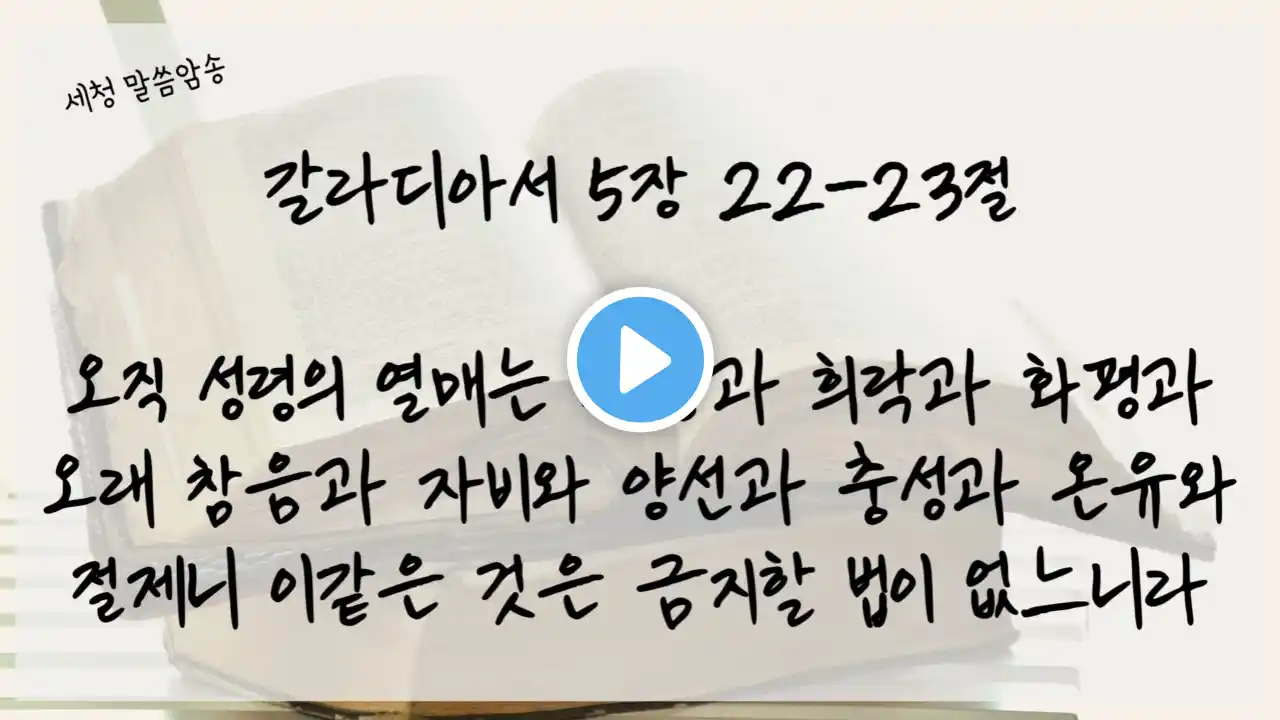 세청 말씀암송
갈라디아서 5장 22-23절
오직 성령의 열매는 희락과 화평과
오래 참음과 자비와 양선과 충성과 온유와
절제니 이같은 것은 금지할 법이 없느니라